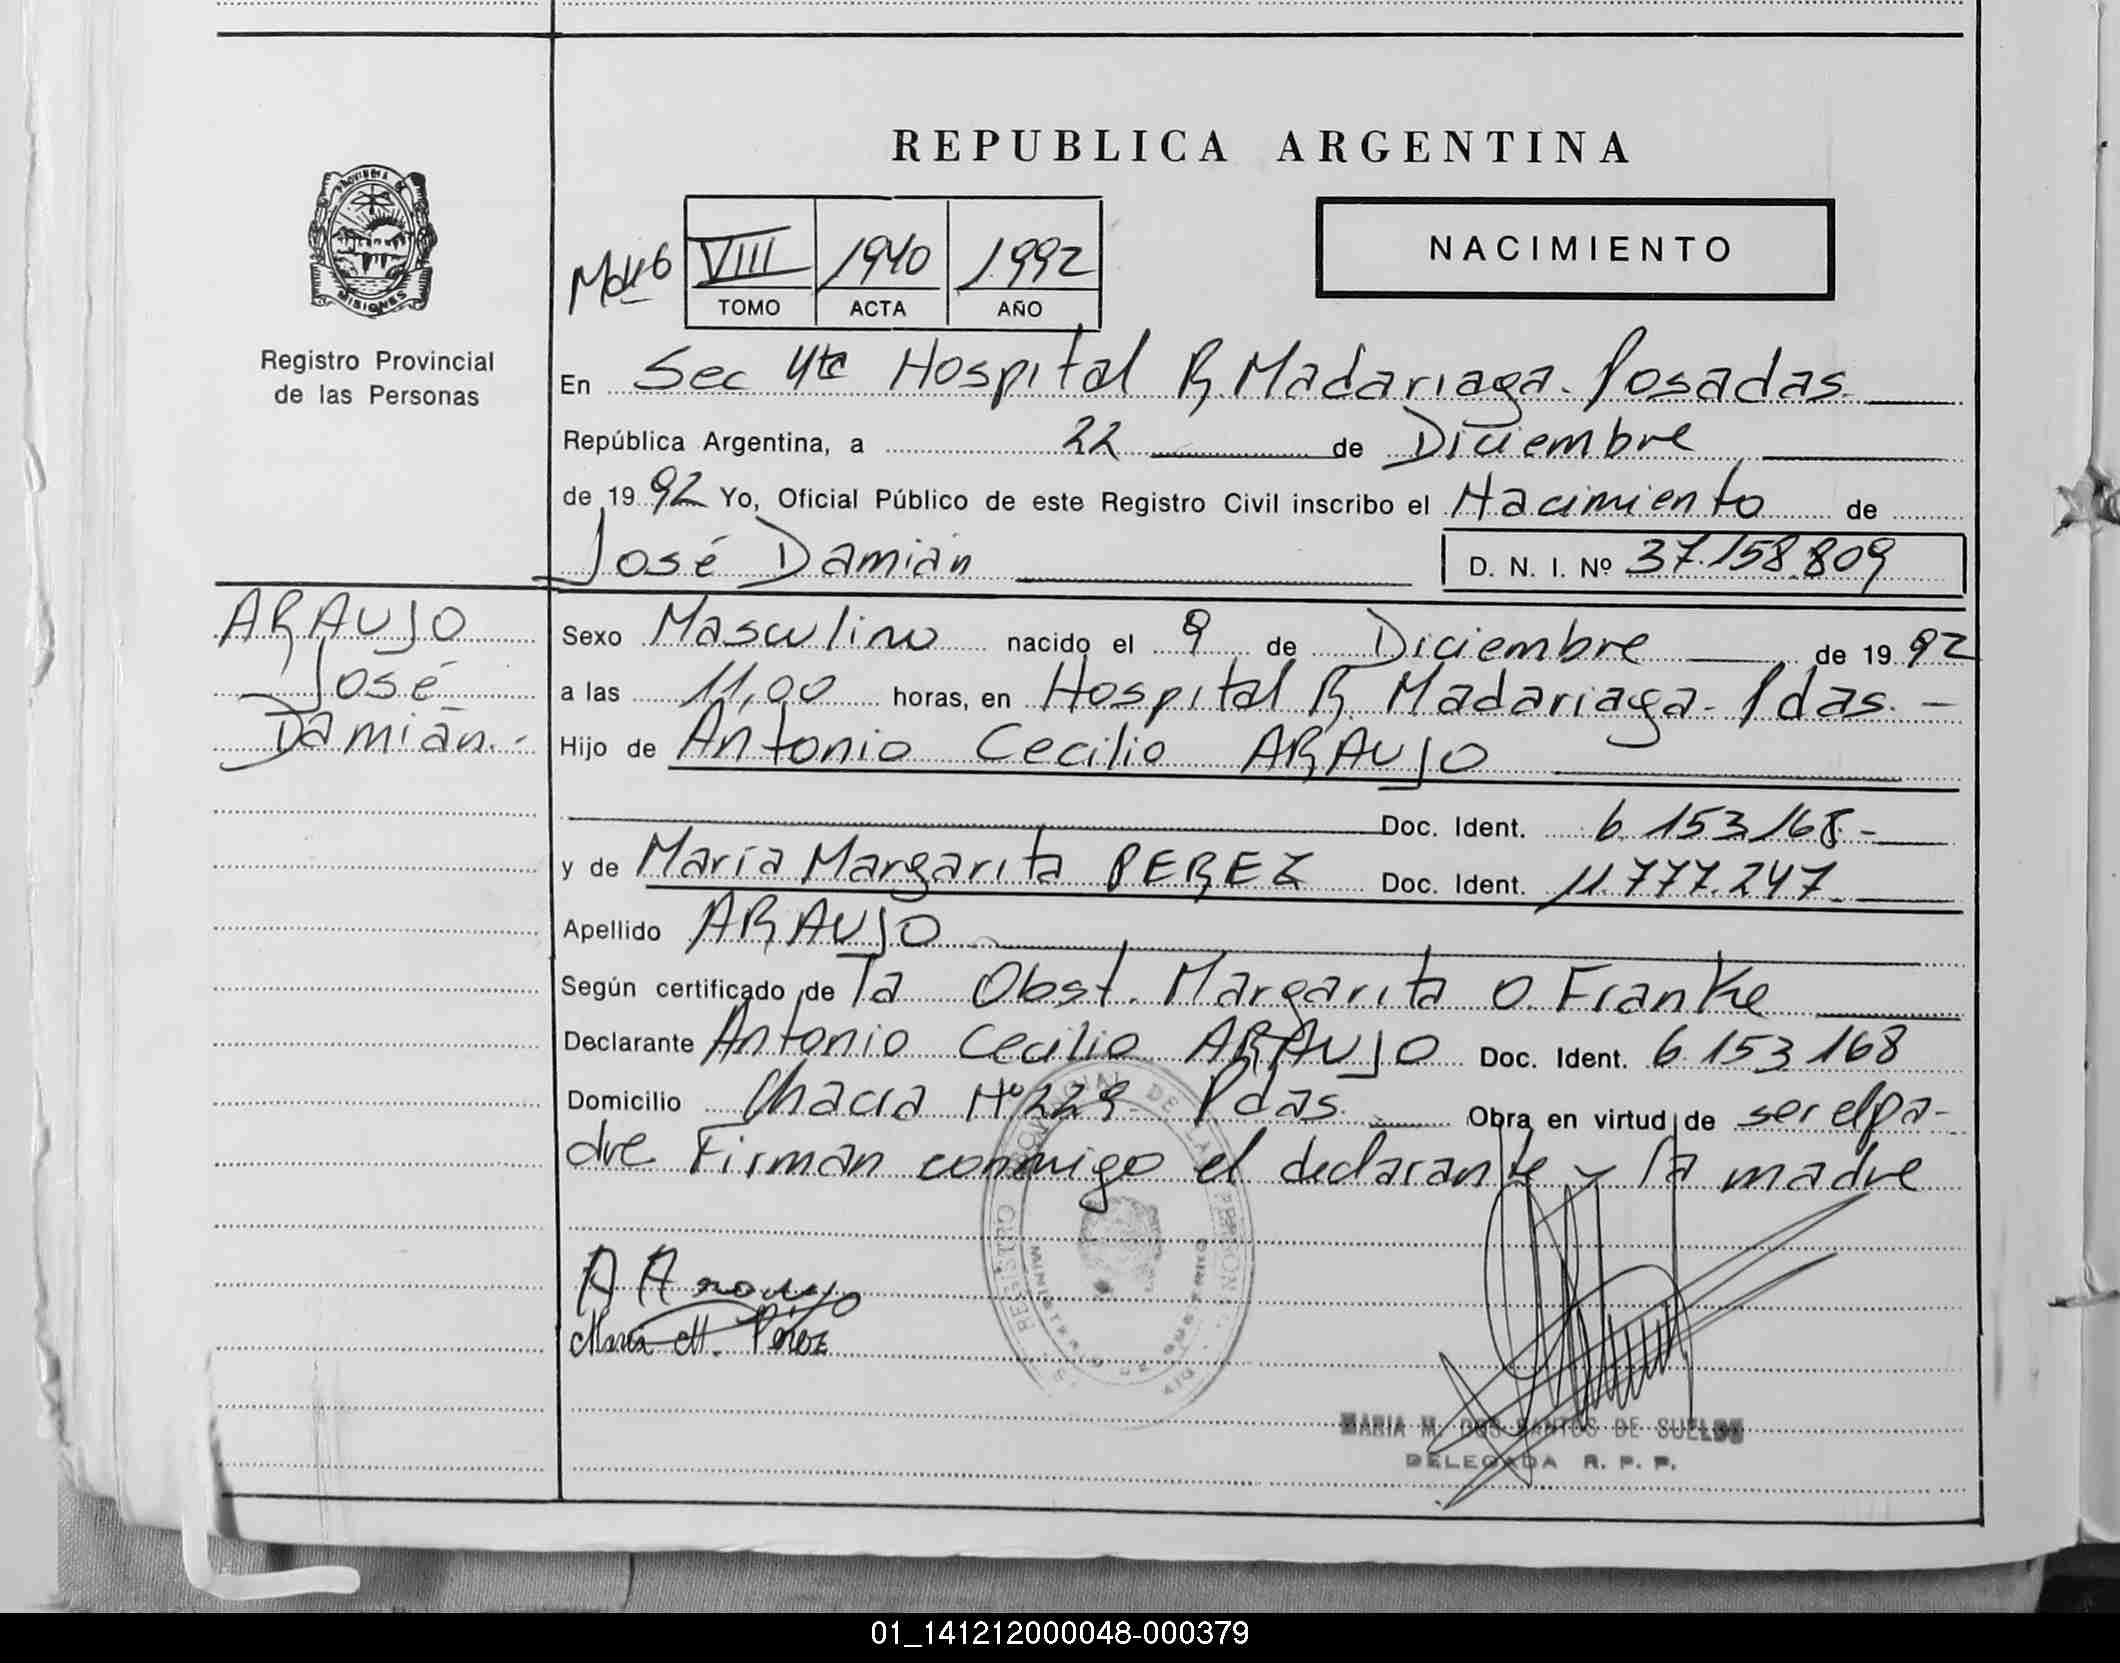 REPUBLICA ARGENTINA
PROVINCIA DE
MISIONES
Registro Provincial
de las Personas
VIII 1940 1992
TOMO ACTA AÑO
NACIMIENTO
En Sec 4ta Hospital R. Madariaga - Posadas
República Argentina, a 22 de Diciembre
de 1992 Yo, Oficial Público de este Registro Civil inscribo el Nacimiento de
José Damián D. N. I. Nº 37.158.809
ARAUJO
José
Damián.-
Sexo Masculino nacido el 9 de Diciembre de 1992
a las 11,00 horas, en Hospital R. Madariaga - Pdas. -
Hijo de Antonio Cecilio ARAUJO
Doc. Ident. 6.153.168-
y de María Margarita PEREZ Doc. Ident. 11.777.247
Apellido ARAUJO
Según certificado de la Obst. Margarita O. Franke
Declarante Antonio Cecilio ARAUJO Doc. Ident. 6.153.168
Domicilio Chacra Nº 229 - Pdas. Obra en virtud de ser el pa-
dre Firman conmigo el declarante y la madre
A Araujo
María M. Pérez
REGISTRO PROVINCIAL DE LAS PERSONAS
MARIA M. DOS SANTOS DE SUELDO
DELEGADA R. P. P.
01_141212000048-000379